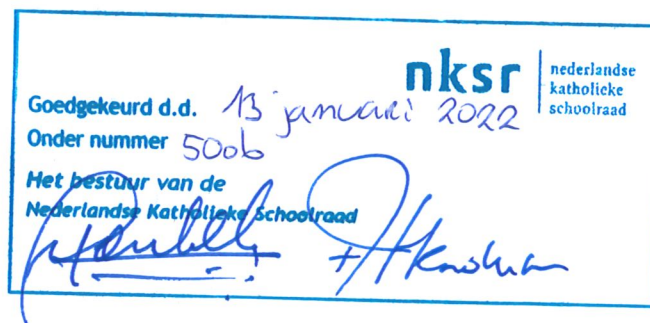 nksr
nederlandse
katholieke
schoolraad
Goedgekeurd d.d. 13 januari 2022
Onder nummer 500b
Het bestuur van de
Nederlandse Katholieke Schoolraad